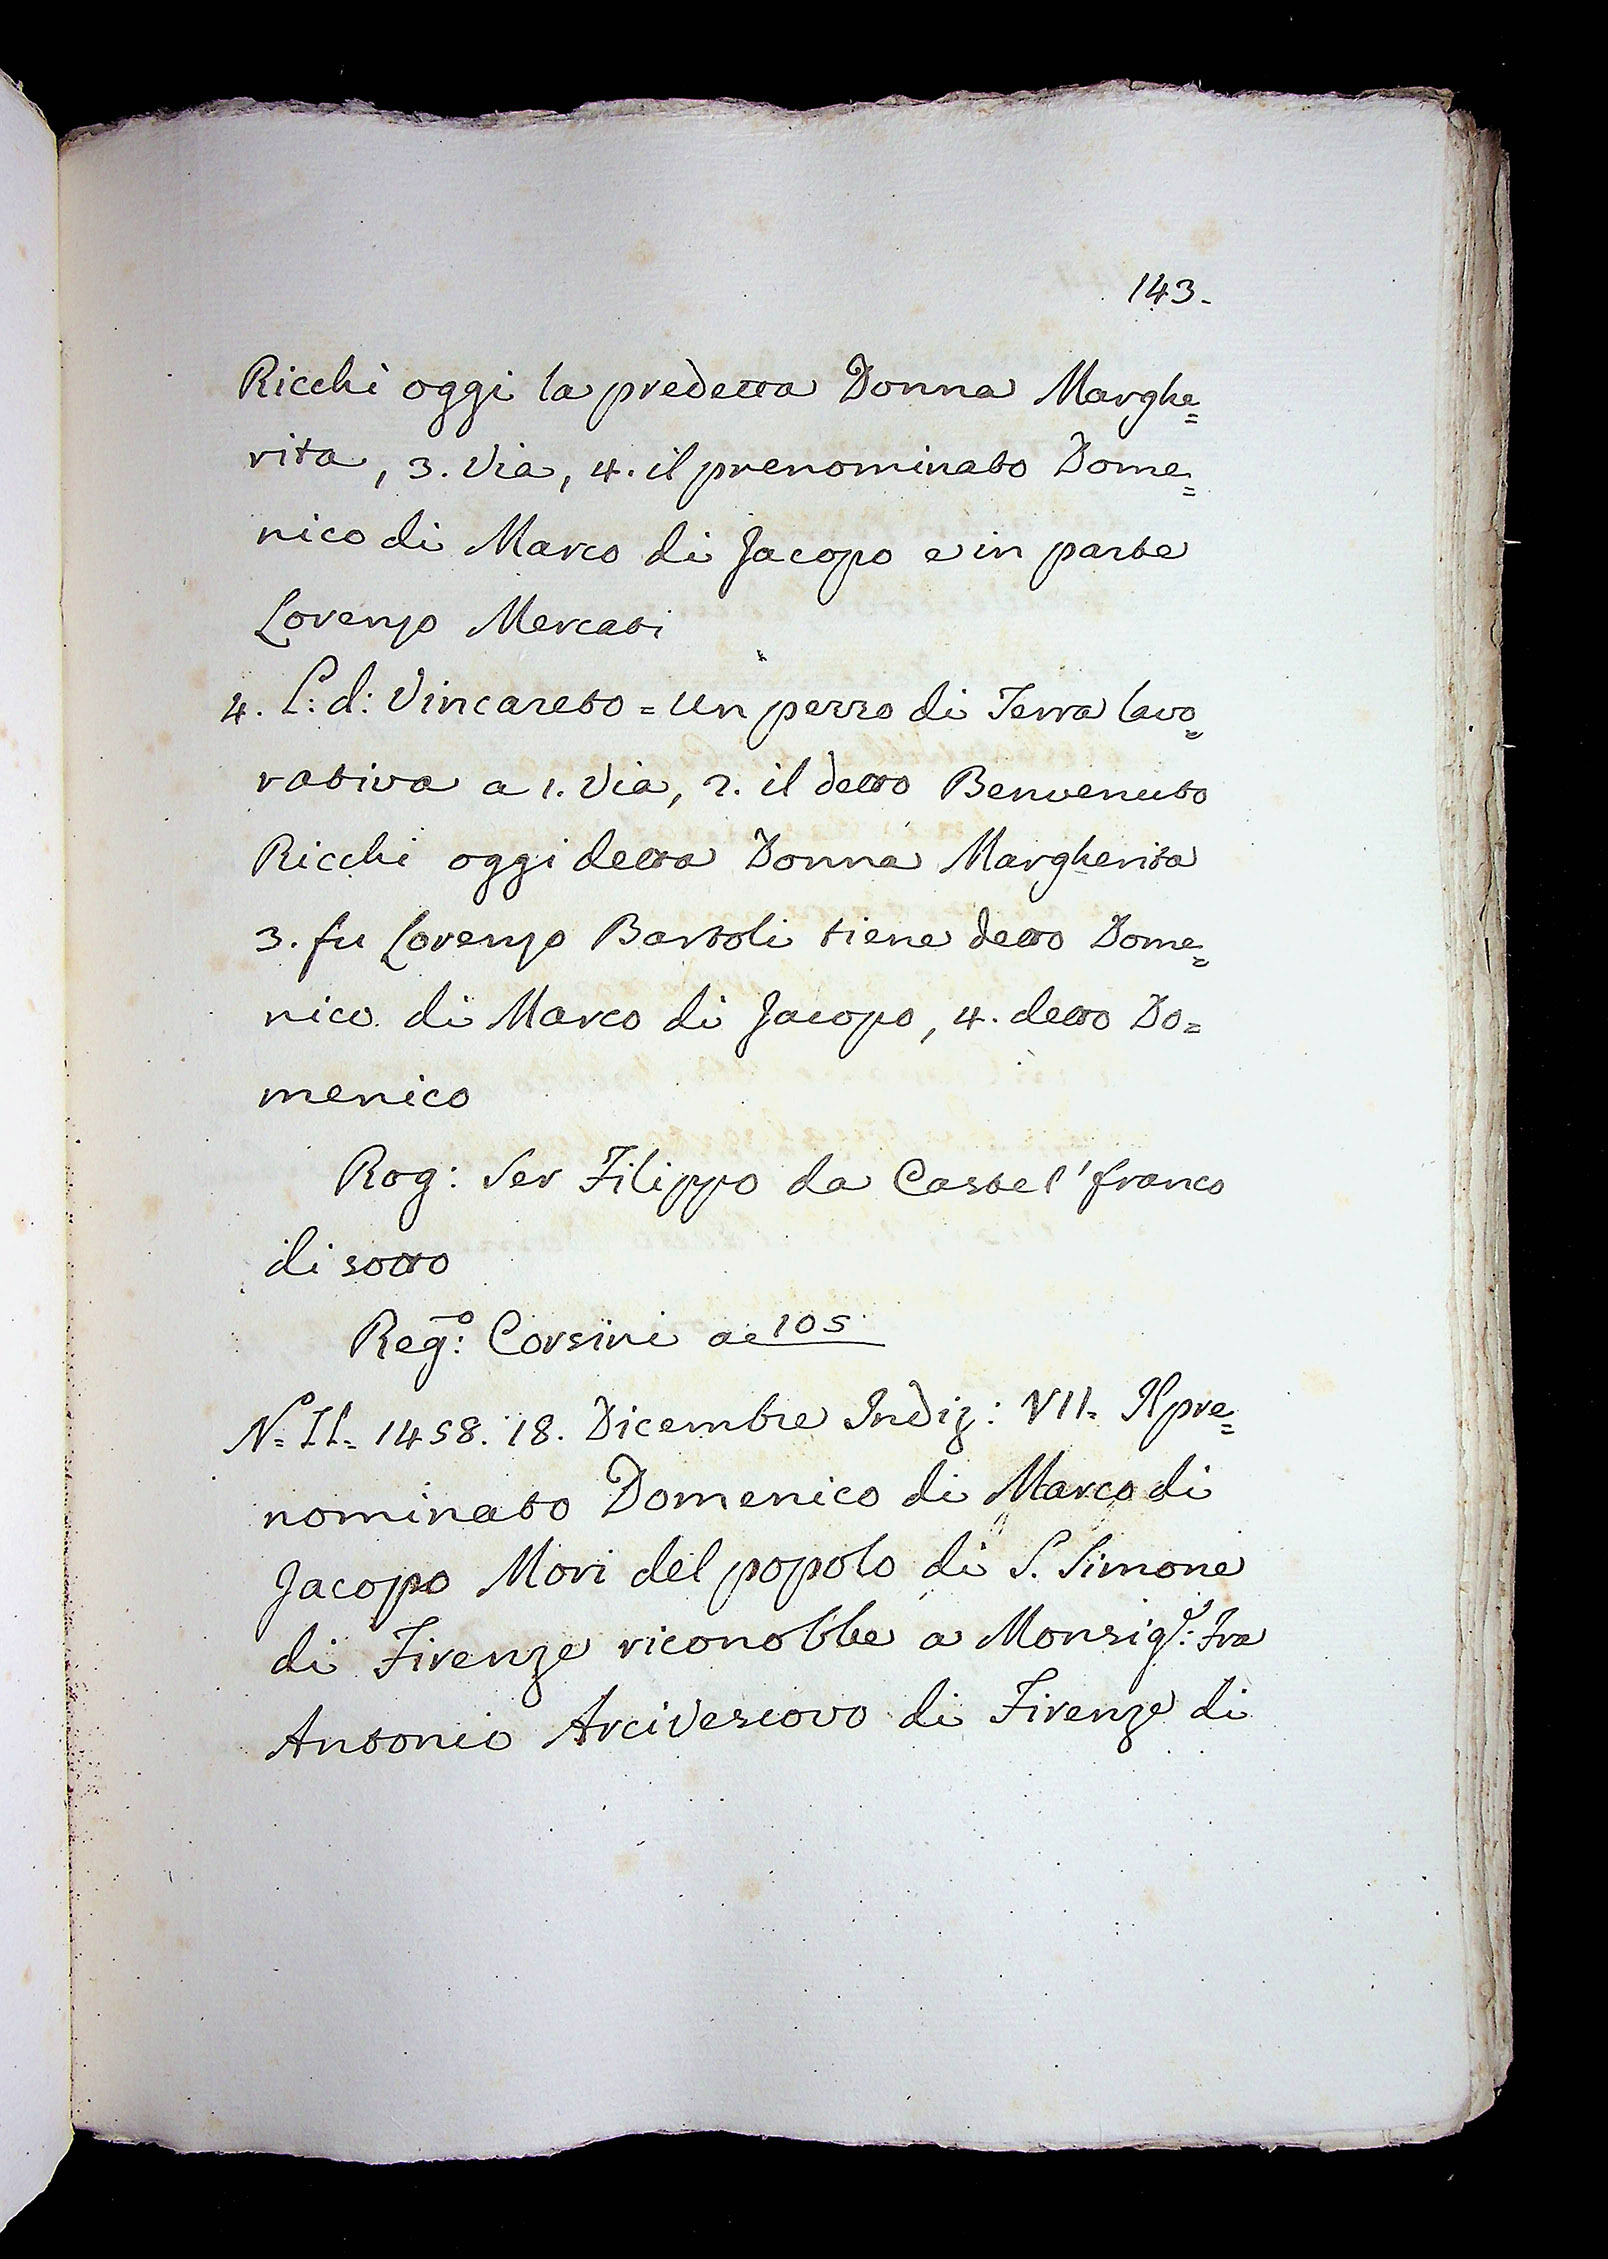 143.
Ricchi oggi la predetta Donna Marghe=
rita, 3. Via, 4. il prenominato Dome=
nico di Marco di Jacopo e in parte
Lorenzo Mercati
4. L: d: Vincareto = Un pezzo di Terra lavo=
rativa a 1. Via, 2. il detto Benvenuto
Ricchi oggi detta Donna Margherita
3. fu Lorenzo Bartoli tiene detto Dome=
nico di Marco di Jacopo, 4. detto Do=
menico
Rog: Ser Filippo da Castel' franco
di sotto
Reg:o Corsini ac 105
N. II. 1458. 18. Dicembre Indiz: VII. Il pre=
nominato Domenico di Marco di
Jacopo Mori del popolo di S. Simone
di Firenze riconobbe a Monsig:r Fra
Antonio Arcivescovo di Firenze di